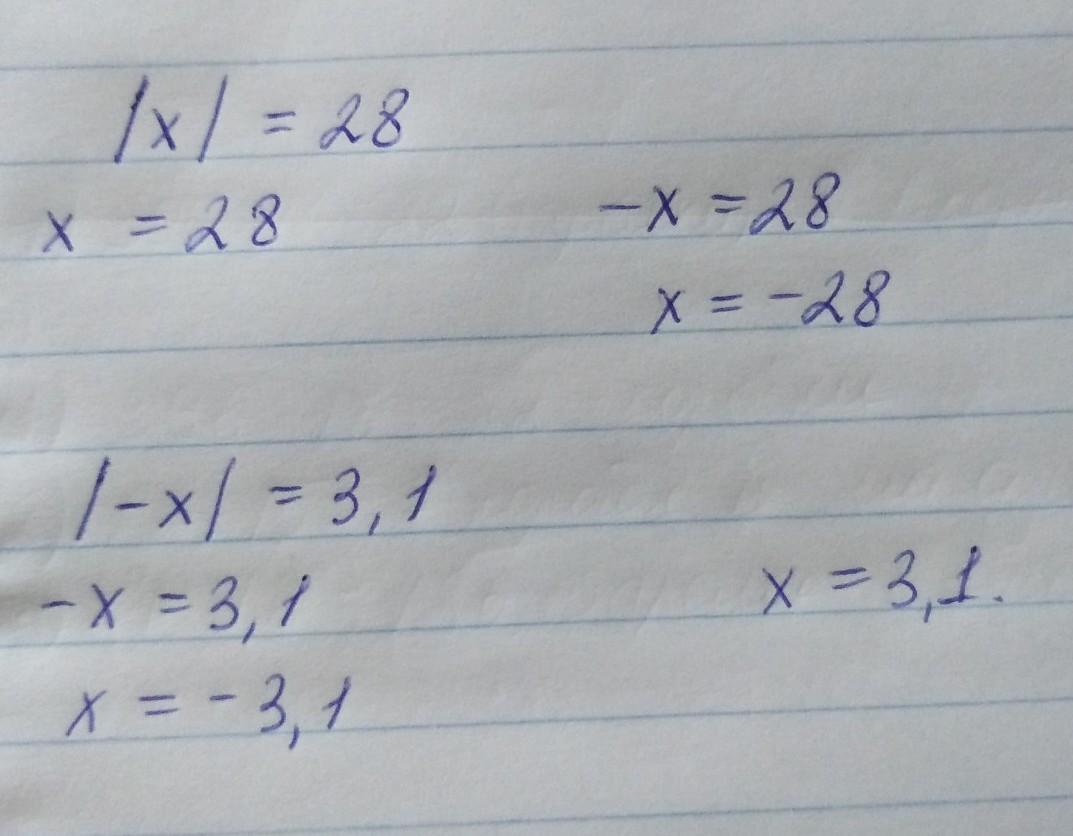 |x| = 28
x = 28 -x = 28
x = -28
|-x| = 3,1
-x = 3,1 x = 3,1.
x = -3,1